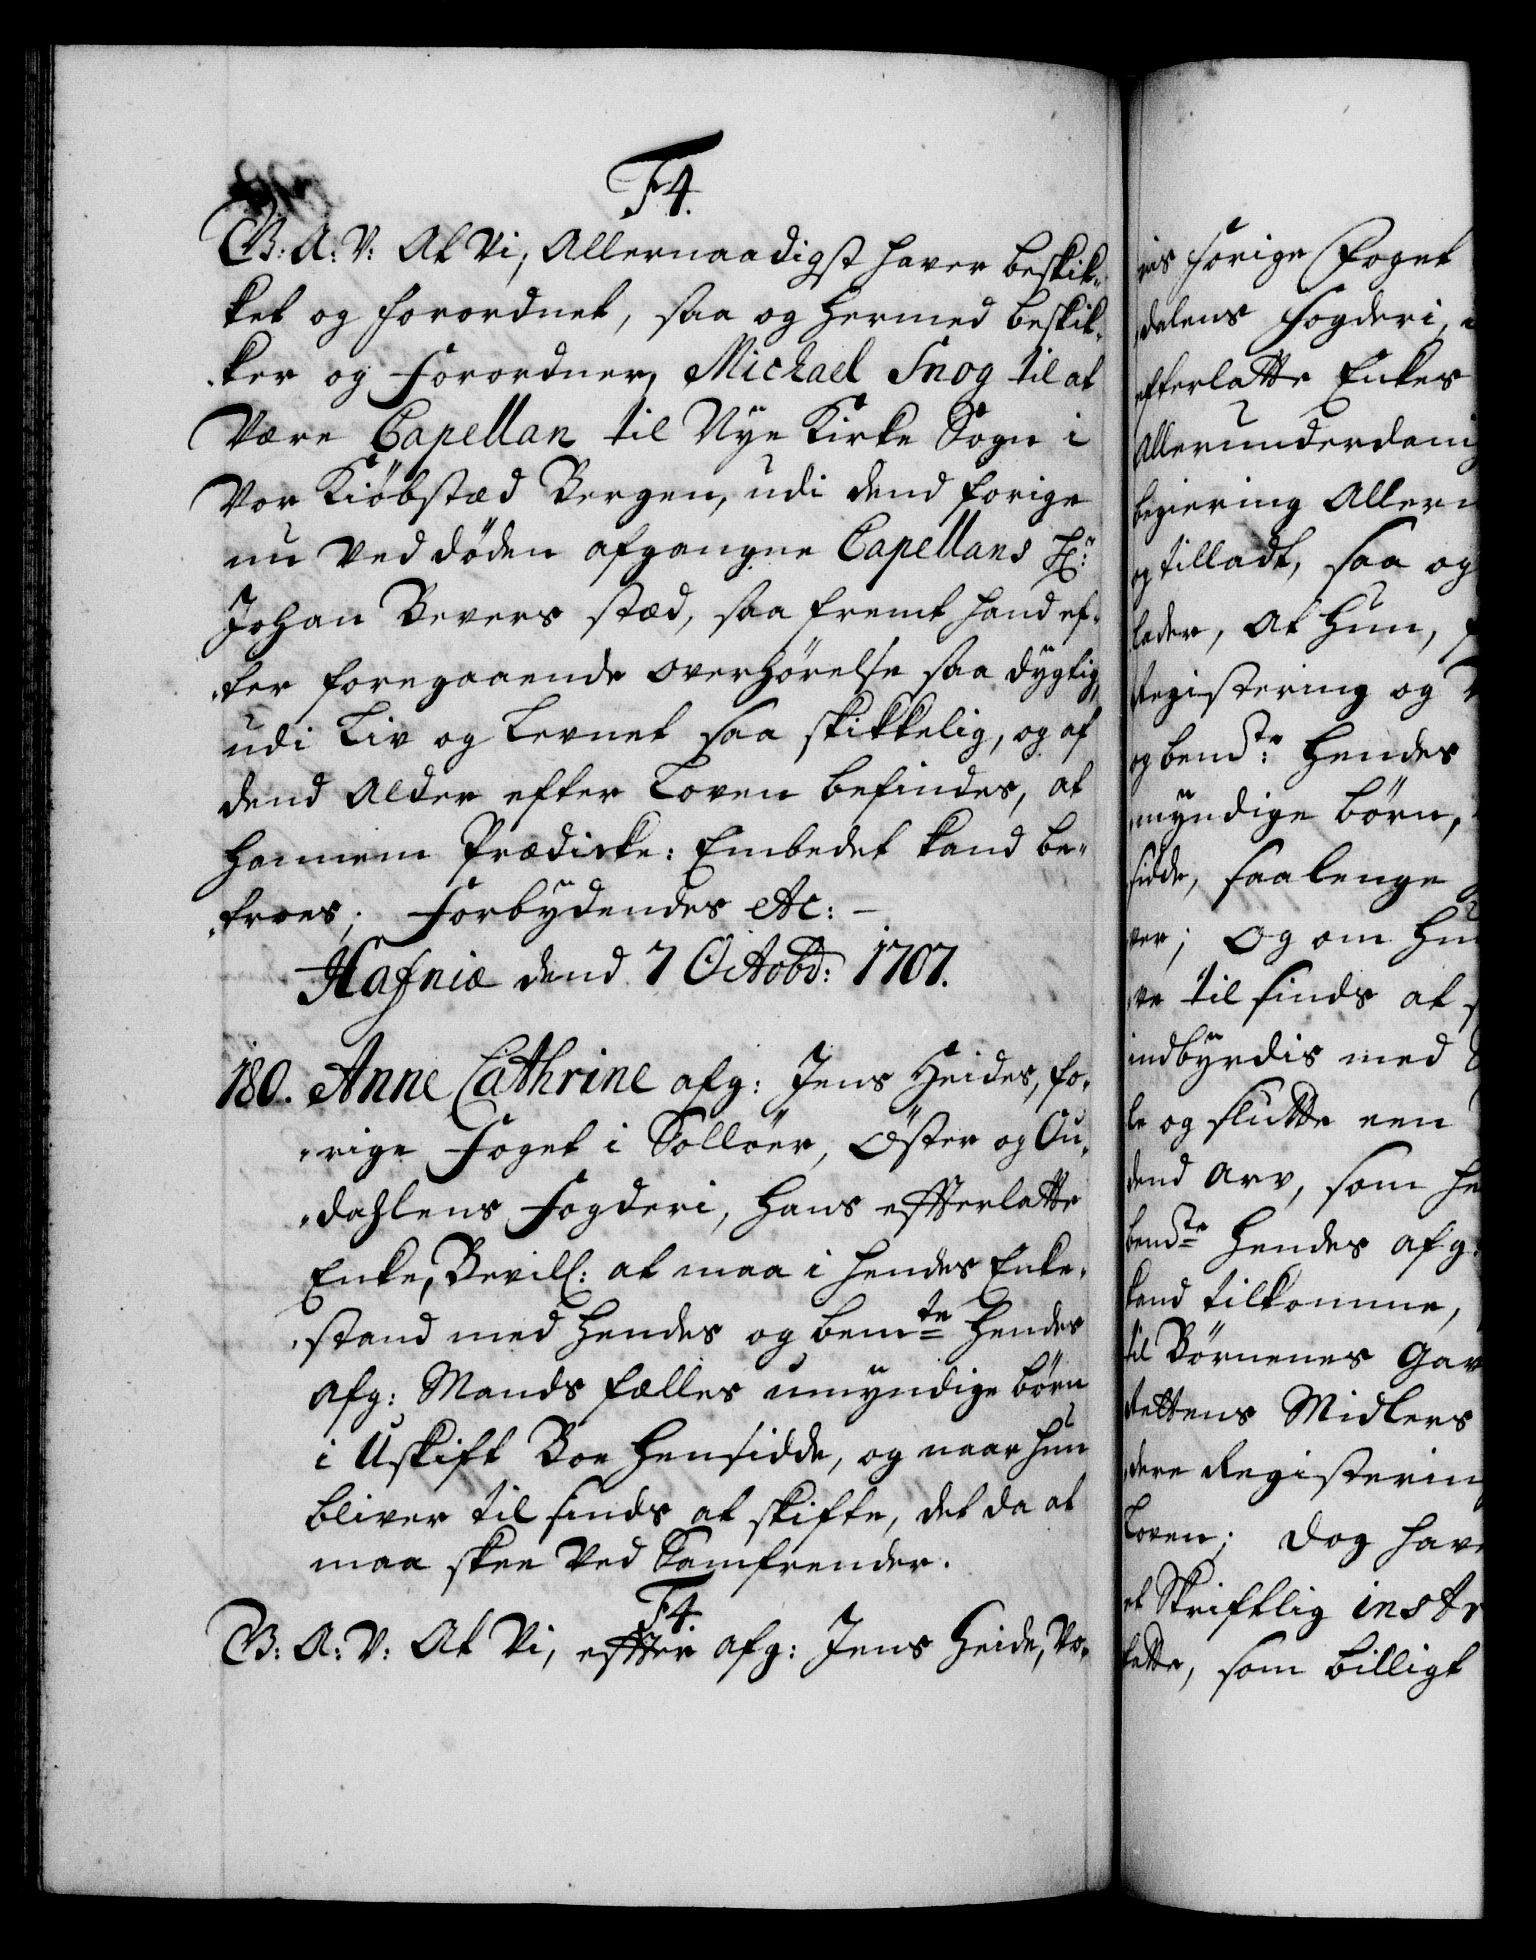 F4.
G: A: V: At Vi, Allernaadigst haver beskik-
ket og forordnet, saa og hermed beskik-
ker og Forordner, Michael Snog til at
være Capellan til Nye Kirke Sogn i
Vor Kiöbstæd Bergen, udi dend forige
nu ved döden afgangne Capellans Hr:
Johan Bevers stæd, saa fremt hand ef-
ter foregaaende overhörelse saa dygtig,
udi Liv og Levnet saa skikkelig, og af
dend Alder efter Loven befindes, at
hannem Prædicke: Embedet kand be-
troes; Forbydendes etc: –
Hafniæ dend 7 Octobr: 1707.
180. Anne Cathrine afg: Jens Heides, fo-
rige Foget i Sollöer, Öster og Ou-
dahlens Fogderi, Hans effterlatte
Enke, Bevill: at maa i hendes Enke-
stand med hendes og bemte hendes
afg: Mands fælles umyndige börn
i Uskift Boe hensidde, og naar hun
bliver til sinds at skifte, det da at
maa skee ved Samfrender.
F4
G: A: V: At Vi, effter afg: Jens Heide, Vo-
ris forige Foget
dalens Fogderi,
efterlatte Enkes
Allerunderdanig
begiering Allern
og tilladt, saa og
lader, at hun,
Registering og
og bemte: hendes
myndige börn,
sidde, saalenge
ver; Og om hun
ve til sinds at
indbyrdis med
le og slutte een
dend Arv, som he
bemte hendes afg:
kand tilkomme,
til Börnenes Gav
Rettens Midlers
dere Registering
Loven; dog have
et Skriftlig instr
tette, som billigt